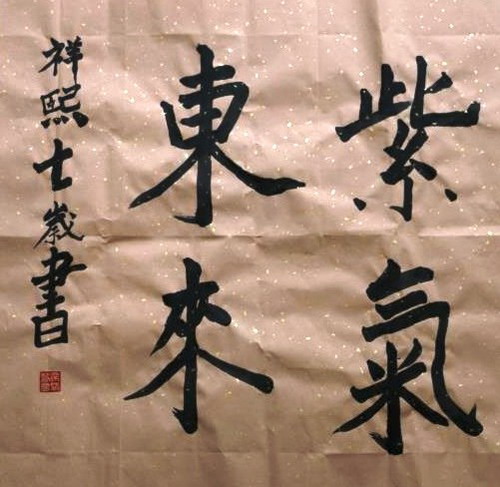 紫氣
東來
祥熙七歲書